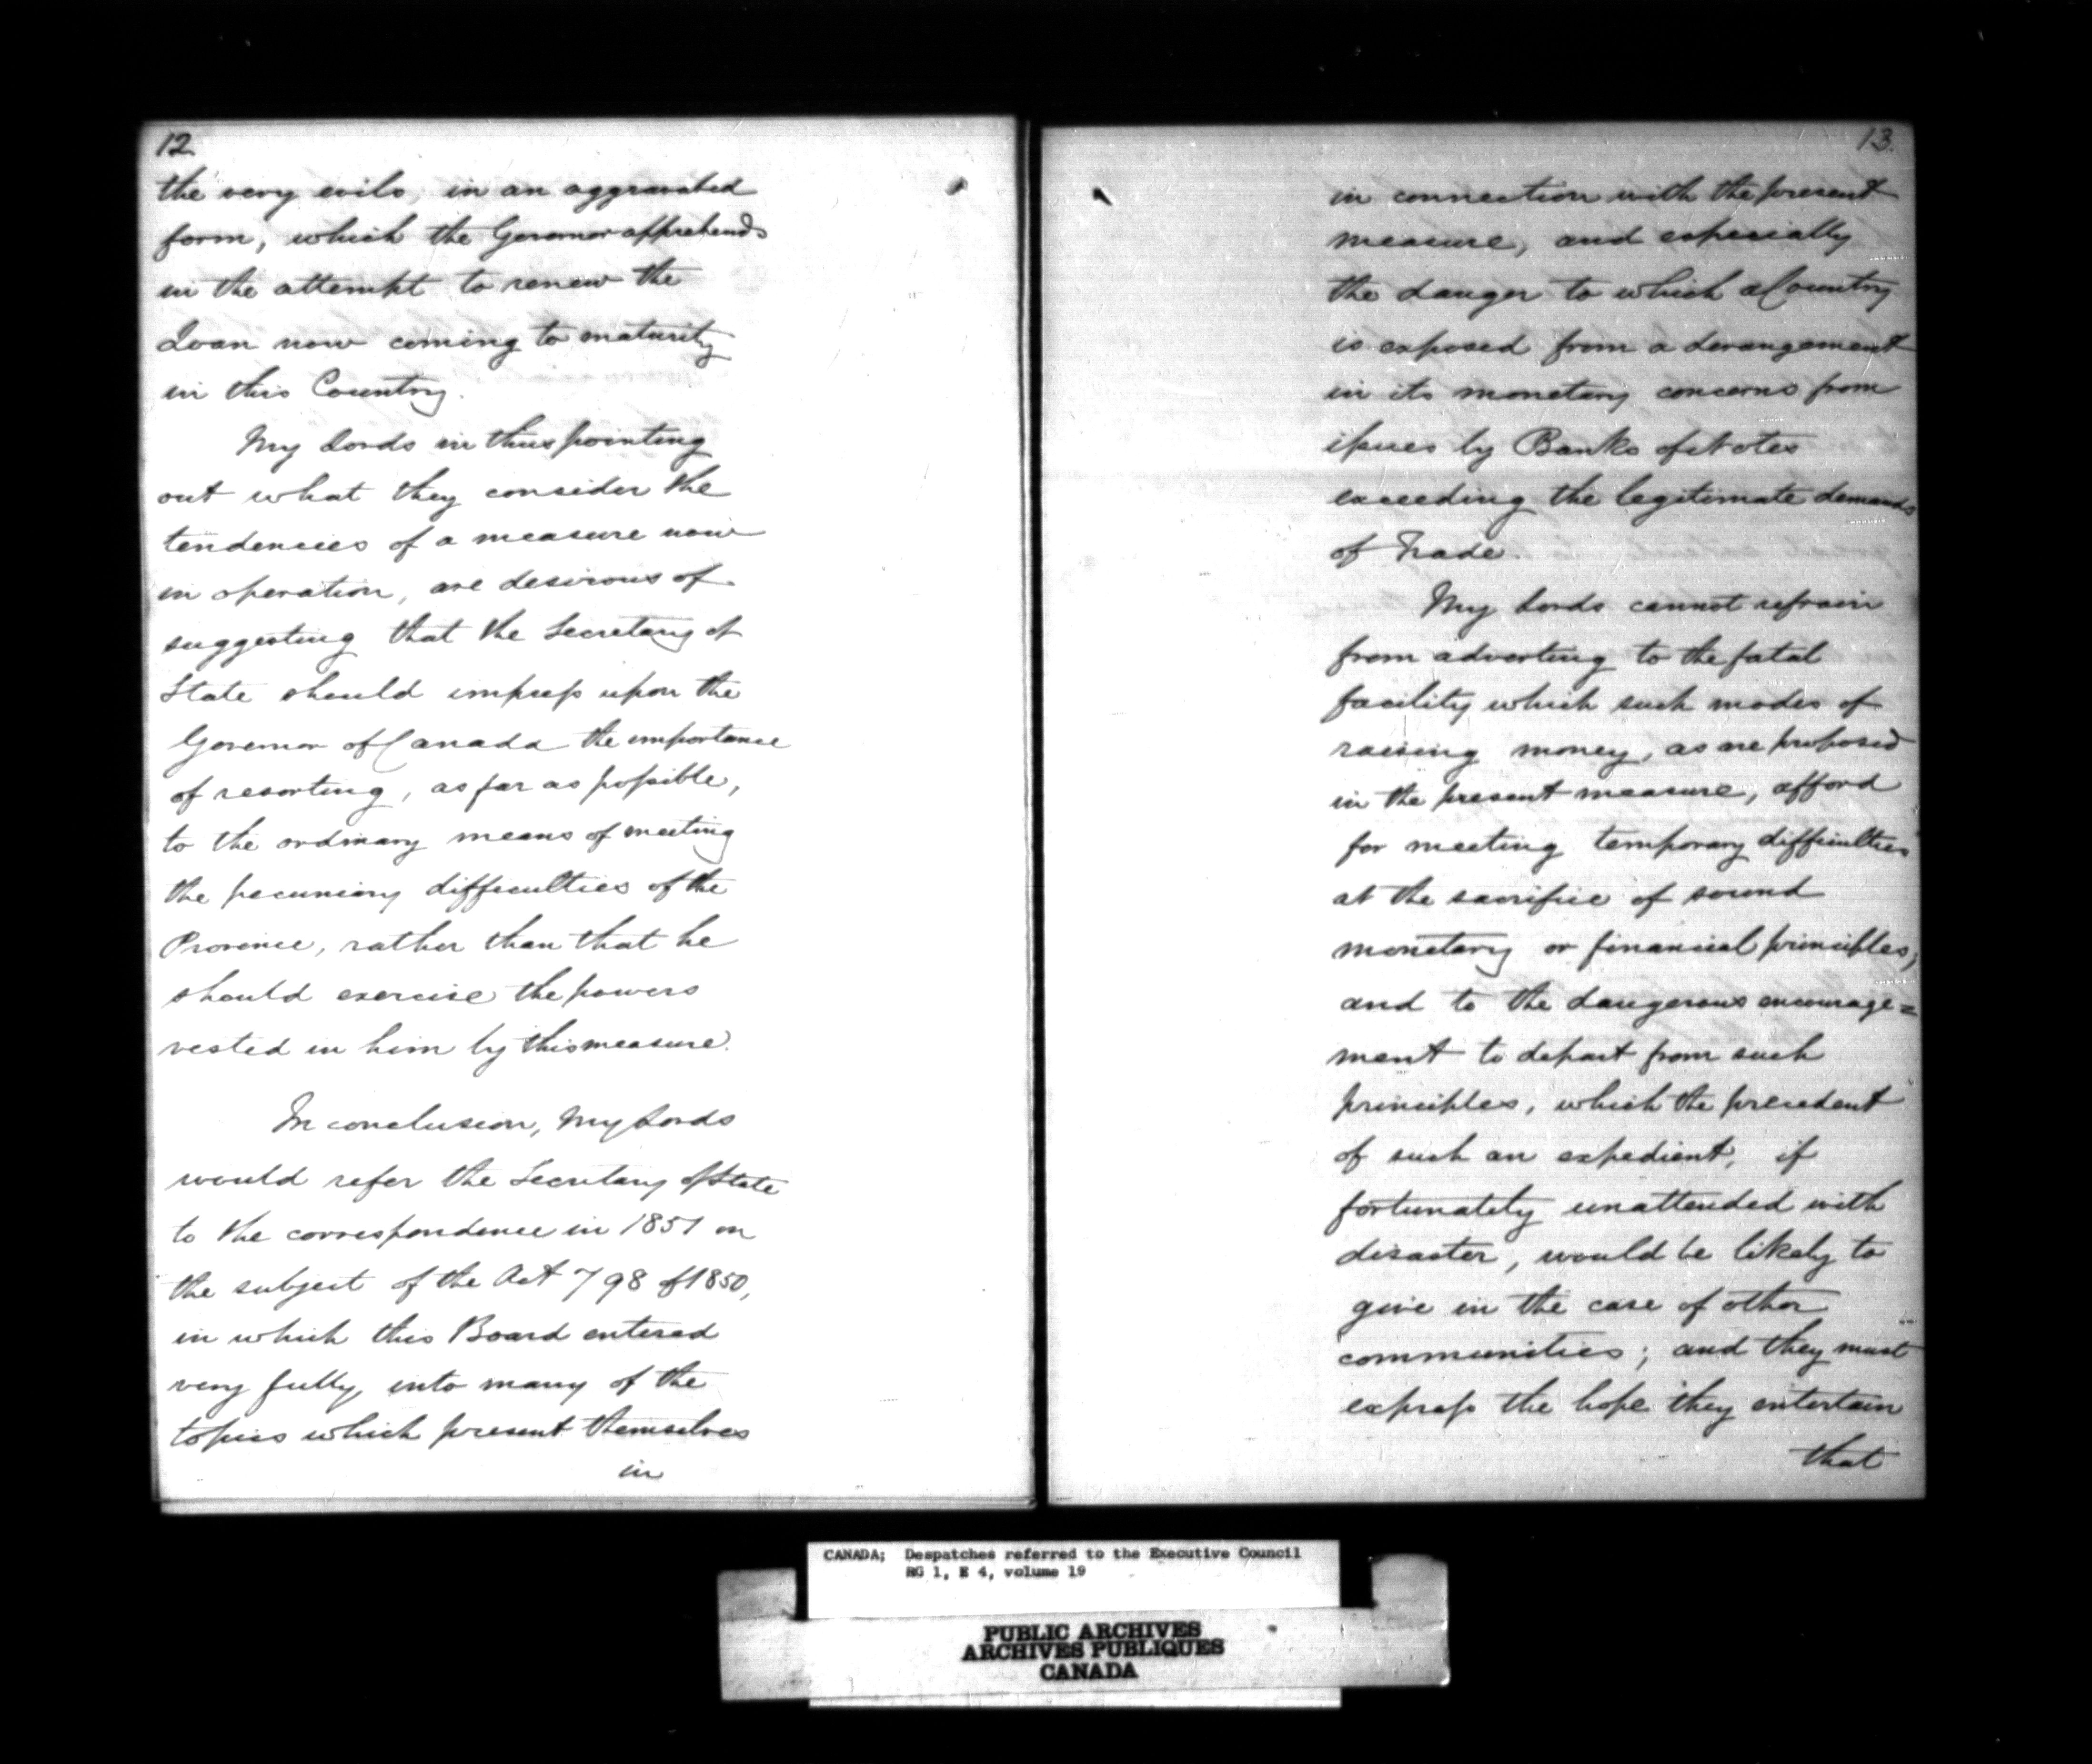 12.
the very evils, in an aggravated
form, which the Governor apprehends
in the attempt to renew the
Loan now coming to maturity
in this Country.
My Lords in thus pointing
out what they consider the
tendencies of a measure now
in operation, are desirous of
suggesting that the Secretary of
State should impress upon the
Governor of Canada the importance
of resorting, as far as possible,
to the ordinary means of meeting
the pecuniary difficulties of the
Province, rather than that he
should exercise the powers
vested in him by this measure.
In conclusion, My Lords
would refer the Secretary of State
to the correspondence in 1851 on
the subject of the Act 798 of 1850,
in which this Board entered
very fully, into many of the
topics which present themselves
in
13.
in connection with the present
measure, and especially
the danger to which a Country
is exposed from a derangement
in its monetary concerns from
issues by Banks of Notes
exceeding the legitimate demands
of Trade.
My Lords cannot refrain
from adverting to the fatal
facility which such modes of
raising money, as are proposed
in the present measure, afford
for meeting temporary difficulties
at the sacrifice of sound
monetary or financial principles,
and to the dangerous encourage=
ment to depart from such
principles, which the precedent
of such an expedient, if
fortunately unattended with
disaster, would be likely to
give in the case of other
communities; and they must
express the hope they entertain
that
CANADA; Despatches referred to the Executive Council
RG 1, E 4, volume 19
PUBLIC ARCHIVES
ARCHIVES PUBLIQUES
CANADA